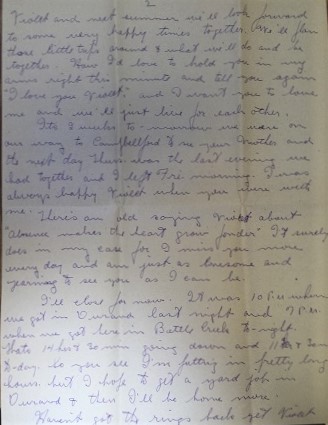 2
Violet and next summer we'll look forward
to some very happy times together. We'll plan
those little trips around & what we'll do and be
together. How I'd love to hold you in my
arms right this minute and tell you again
"I love you Violet," and I want you to love
me and we'll just live for each other.
Its 2 weeks to-morrow we were on
our way to Campbellford to see your Mother and
the next day Thurs. was the last evening we
had together and I left Fri. morning. I was
always happy Violet when you were with
me. There's an old saying Violet about
"Absence makes the heart grow fonder" It surely
does in my case for I miss you more
every day and am just as lonesome and
yearning to see you as I can be.
I'll close for now. It was 10 P.M. when
we got in Durand last night and 9 P.M.
when we got here in Battle Creek to-night.
Thats 14 hrs & 30 min going down and 11 hrs &
to-day. So you see I'm putting in pretty long
hours. but I hope to get a yard job in
Durand & then I'll be home more.
Haven't got the rings back yet Violet